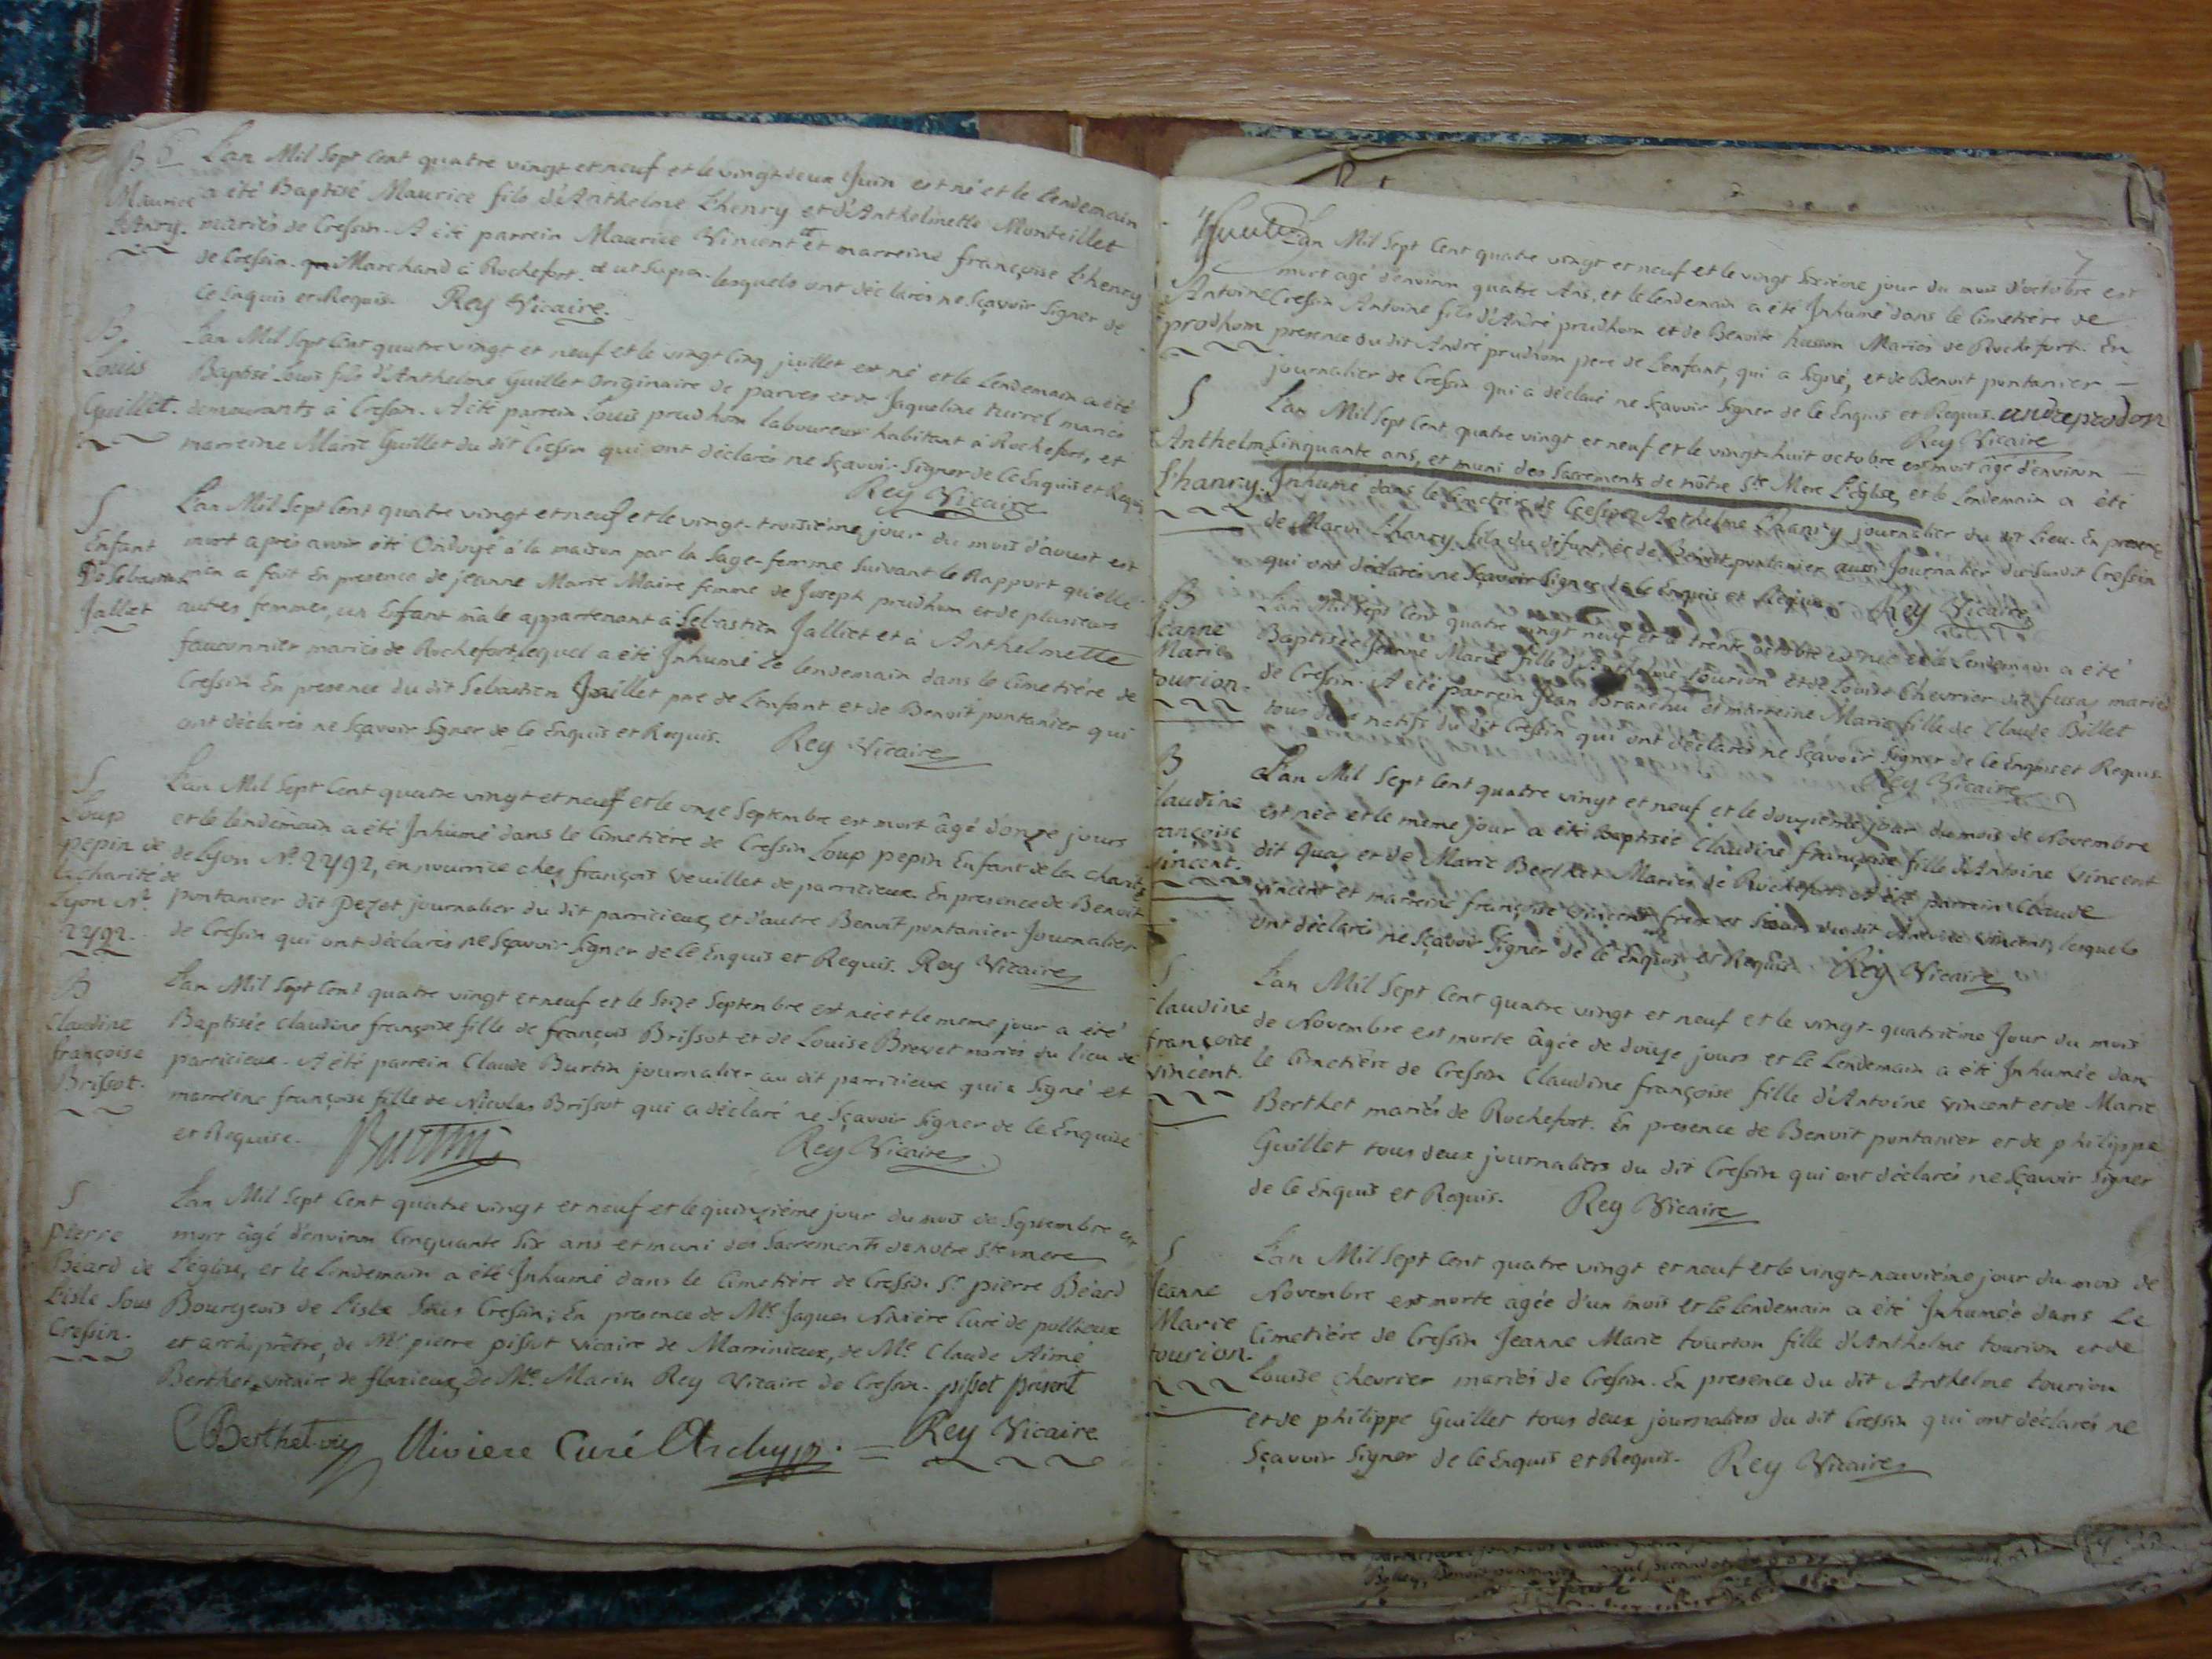 B 6 L'an Mil Sept Cent quatre vingt et neuf et le vingt deux Juin est né et le lendemain
Maurice a été Baptisé Maurice fils d'Anthelme Lhenry et d'Anthelmette Monteillet
Lhenry. mariés de Cressin. A été parrein Maurice Vincent et marreine françoise Lhenry
de Cressin. Marchand à Rochefort. et ut supra. lesquels ont déclarés ne Sçavoir Signer de
ce Enquis et Requis. Rey Vicaire.
B. L'an Mil Sept Cent quatre vingt et neuf et le vingt Cinq juillet est né et le Lendemain a été
Louis Baptisé Louis fils d'Anthelme Guillet Originaire de parves et de Jaqueline mariés
Guillet. demeurants à Cressin. A été parrein Louis prudhom laboureur habitant à Rochefort, et
marreine Marie Guillet du dit Cressin qui ont déclarés ne Sçavoir Signer de Ce Enquis et Requis
Rey Vicaire
S L'an Mil Sept Cent quatre vingt et neuf et le vingt-troisième jour du mois d'aoust est
Enfant mort après avoir été Ondoyé à la maison par la Sage-femme Suivant le Rapport qu'elle
De Sebastien m'en a fait En presence de jeanne Marie Maire femme de Joseph prudhom et de plusieurs
Jallet autres femmes, un Enfant mâle appartenant à Sebastien Jalliet et à Anthelmette
fauconnier mariés de Rochefort, lequel a été Inhumé le lendemain dans le Cimetière de
Cressin En presence du dit Sebastien Jaillet pere de L'enfant et de Benoit pontanier qui
ont déclarés ne Sçavoir Signer de Ce Enquis et Requis. Rey Vicaire
S L'an Mil Sept Cent quatre vingt et neuf et le onze Septembre est mort âgé d'onze jours
Loup et le lendemain a été Inhumé dans le Cimetière de Cressin Loup pepin Enfant de la Charité
pepin de de Lyon N° 2792, en nourrice chez françois Veuillet de parricieux. En presence de Benoit
la charité de pontanier dit Pezet journalier du dit parricieux, et d'autre Benoit pontanier Journalier
Lyon N° de Cressin qui ont déclarés ne Sçavoir Signer de Ce Enquis et Requis. Rey Vicaire
2792.
B L'an Mil Sept Cent quatre vingt et neuf et le Seize Septembre est née et le meme jour a été
Claudine Baptisée Claudine françoise fille de françois Brissot et de Louise Brevet mariés du lieu de
françoise parricieux. A été parrein Claude Burtin journalier au dit parricieux qui a Signé et
Brissot. marreine françoise fille de Nicolas Brissot qui a déclaré ne Sçavoir Signer de Ce Enquise
et Requise. Burtin Rey Vicaire
S L'an Mil Sept Cent quatre vingt et neuf et le quinzième jour du mois de Septembre est
pierre mort âgé d'environ Cinquante Six ans et muni des Sacrements de notre Ste mere
Béard de L'église, et le lendemain a été Inhumé dans le Cimetière de Cressin Sr pierre Béard
Lisle Sous Bourgeois de Lisle Sous Cressin; En presence de Mre Jaques Nivière Curé de pollieux
Cressin. et archiprêtre, de Mre pierre pissot Vicaire de Marrinieux, de Mre Claude Aimé
Berthet vicaire de flaxieux, de Mre Marin Rey Vicaire de Cressin. pissot présent
CBerthet vic Niviere Curé Archip. = Rey Vicaire
7
L'an Mil Sept Cent quatre vingt et neuf et le vingt Sixième jour du mois d'octobre est
mort agé d'environ quatre Ans, et le Lendemain a été Inhumé dans le Cimetière de
Antoine Cressin Antoine fils d'André prudhom et de Benoite husson Mariés de Rochefort. En
prodhom presence du dit André prudhom pere de L'enfant, qui a Signé, et de Benoit pontanier
journalier de Cressin qui a déclaré ne Sçavoir Signer de Ce Enquis et Requis. andre prodon
Rey Vicaire
S L'an Mil Sept Cent quatre vingt et neuf et le vingt-huit octobre est mort âgé d'environ
Anthelme Cinquante ans, et muni des Sacrements de nôtre Ste Mere L'Eglise, et le Lendemain a été
Lhanry. Inhumé dans le Cimetière de Cressin Anthelme Lhanry journalier du dit Lieu. En presence
de Lhanry fils du défunt, et de Benoit pontanier aussi Journalier du Susdit Cressin
qui ont déclarés ne Sçavoir Signer de Ce Enquis et Requis. Rey Vicaire
B L'an Mil Sept Cent quatre vingt neuf et le trente octobre est née et le Lendemain a été
Jeanne Baptisée Jeanne Marie fille d'Anthelme Tourion et de Louise Chevrier dit fusaz mariés
Marie de Cressin. A été parrein Jean Branchu et marreine Marie fille de Claude Billet
tourion. tous deux natifs du dit Cressin qui ont déclarés ne Sçavoir Signer de Ce Enquis et Requis.
Rey Vicaire
B L'an Mil Sept Cent quatre vingt et neuf et le douzième jour du mois de Novembre
Claudine est née et le même jour a été Baptisée Claudine françoise fille d'Antoine Vincent
françoise dit quay et de Marie Berthet Mariés de Rochefort. A été parrein Claude
Vincent. Vincent et marreine françoise Vincent frere et Soeur du dit Antoine Vincent, lesquels
ont déclarés ne Sçavoir Signer de Ce Enquis et Requis. Rey Vicaire
S L'an Mil Sept Cent quatre vingt et neuf et le vingt-quatrième Jour du mois
Claudine de Novembre est morte âgée de douze jours et le Lendemain a été Inhumée dans
françoise le Cimetière de Cressin Claudine françoise fille d'Antoine Vincent et de Marie
Vincent. Berthet mariés de Rochefort. En presence de Benoit pontanier et de philippe
Guillet tous deux journaliers du dit Cressin qui ont déclarés ne Sçavoir Signer
de Ce Enquis et Requis. Rey Vicaire
S L'an Mil Sept Cent quatre vingt et neuf et le vingt-neuvième jour du mois de
Jeanne Novembre est morte agée d'un mois et le lendemain a été Inhumée dans Le
Marie Cimetière de Cressin Jeanne Marie tourion fille d'Anthelme tourion et de
tourion. Louise chevrier mariés de Cressin. En presence du dit Anthelme tourion
et de philippe Guillet tous deux journaliers du dit Cressin qui ont déclarés ne
Sçavoir Signer de Ce Enquis et Requis. Rey Vicaire